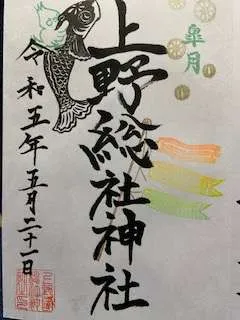 皐月
上野総社神社
令和五年五月二十一日